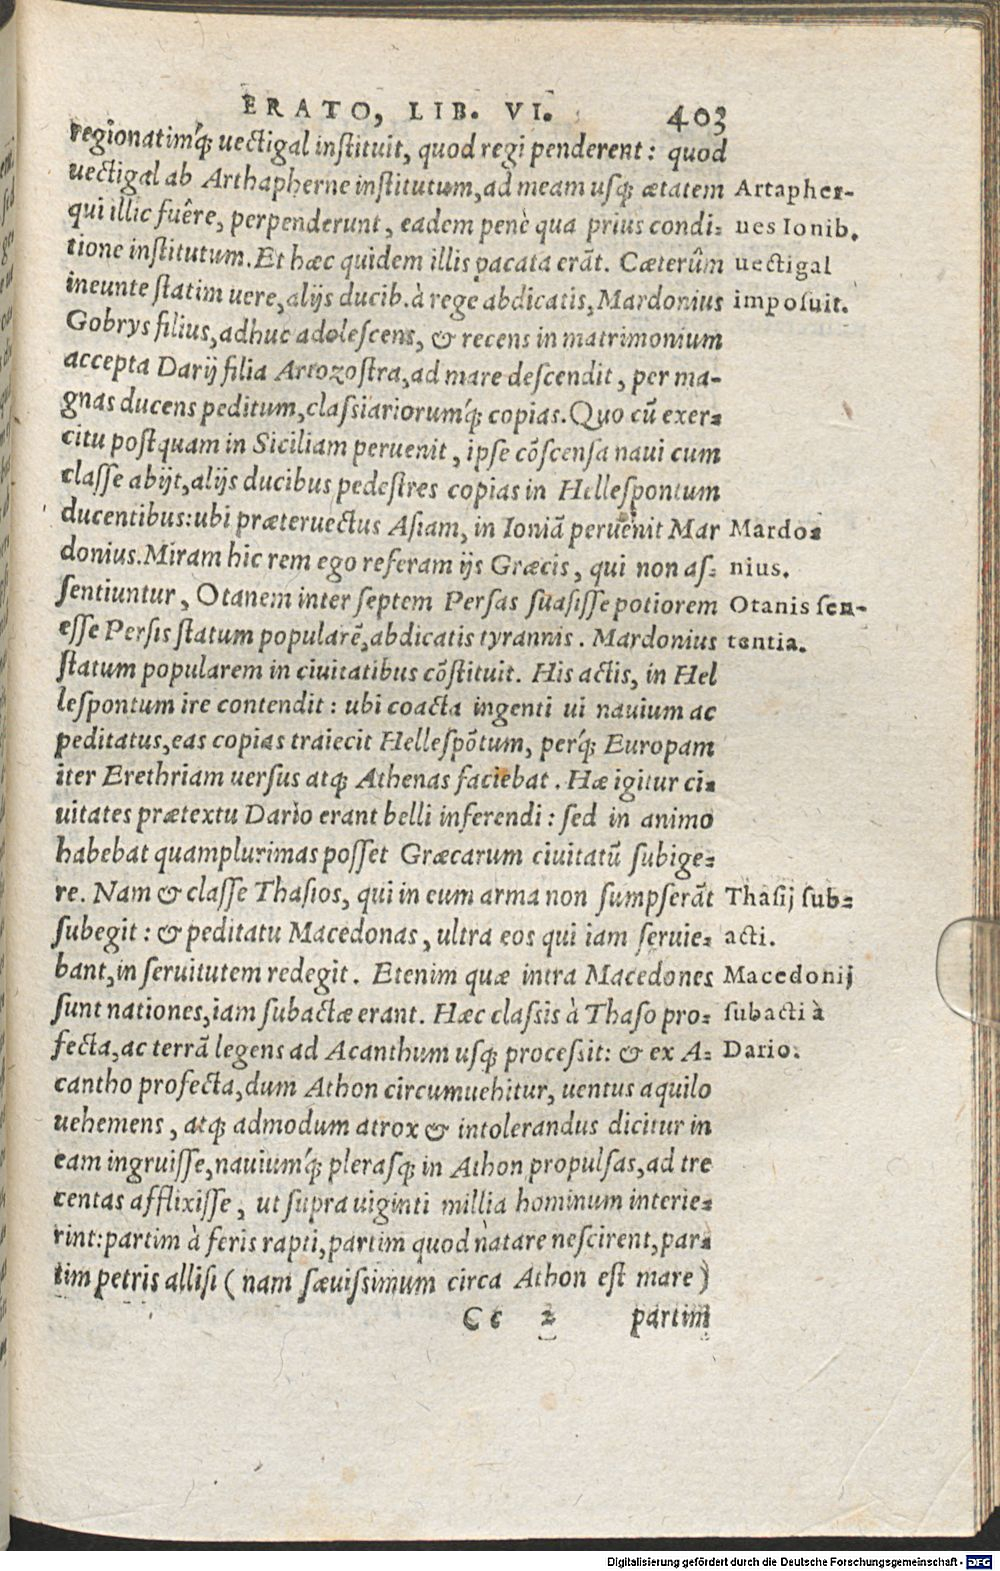 ERATO, LIB. VI. 403
regionatimq́ꝫ uectigal instituit, quod regi penderent: quod
uectigal ab Arthapherne institutum, ad meam usqꝫ ætatem
qui illic fuêre, perpenderunt, eadem penè qua prius condi-
tione institutum. Et hæc quidem illis pacata erãt. Cæterûm
ineunte statim uere, alijs ducib. à rege abdicatis, Mardonius
Gobrys filius, adhuc adolescens, & recens in matrimonium
accepta Darij filia Artozostra, ad mare descendit, per ma-
gnas ducens peditum, classiariorumq́ꝫ copias. Quo cũ exer-
citu postquam in Siciliam peruenit, ipse cõscensa naui cum
classe abijt, alijs ducibus pedestres copias in Hellespontum
ducentibus: ubi præteruectus Asiam, in Ioniã peruenit Mar
donius. Miram hic rem ego referam ijs Græcis, qui non as-
sentiuntur, Otanem inter septem Persas suasisse potiorem
esse Persis statum popularẽ, abdicatis tyrannis. Mardonius
statum popularem in ciuitatibus cõstituit. His actis, in Hel
lespontum ire contendit: ubi coacta ingenti ui nauium ac
peditatus, eas copias traiecit Hellespõtum, perq́ꝫ Europam
iter Erethriam uersus atqꝫ Athenas faciebat. Hæ igitur ci-
uitates prætextu Dario erant belli inferendi: sed in animo
habebat quamplurimas posset Græcarum ciuitatũ subige-
re. Nam & classe Thasios, qui in eum arma non sumpserãt
subegit: & peditatu Macedonas, ultra eos qui iam seruie-
bant, in seruitutem redegit. Etenim quæ intra Macedones
sunt nationes, iam subactæ erant. Hæc classis à Thaso pro-
fecta, ac terrã legens ad Acanthum usqꝫ processit: & ex A-
cantho profecta, dum Athon circumuehitur, uentus aquilo
uehemens, atqꝫ admodum atrox & intolerandus dicitur in
eam ingruisse, nauiumq́ꝫ plerasqꝫ in Athon propulsas, ad tre
centas afflixisse, ut supra uiginti millia hominum interie-
rint: partim à feris rapti, partim quod natare nescirent, par-
tim petris allisi (nam sæuissimum circa Athon est mare)
Cc 2 partim
Artapher-
nes Ionib.
uectigal
imposuit.
Mardo-
nius.
Otanis sen-
tentia.
Thasij sub-
acti.
Macedonij
subacti à
Dario.
Digitalisierung gefördert durch die Deutsche Forschungsgemeinschaft - DFG